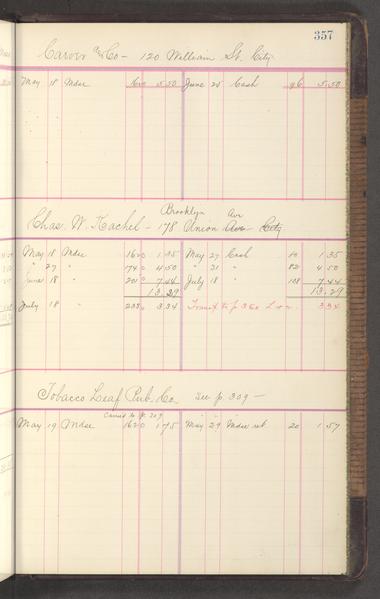 357
Carvir & Co - 120 William St. City
May 18 Mdse 160 5.50 June 25 Cash 96 5.50
Brooklyn Av
Chas. W. Kachel - 178 Union Ave City
May 18 Mdse 160 1.35 May 27 Cash 10 1.35
" 27 " 174 4.50 " 31 " 82 4.50
June 18 " 201 7.44 July 18 " 108 7.44
13.29 13.29
July 18 " 238 3.34 Transf to p 360 L 3.34
Tobacco Leaf Pub. Co. see p. 309 -
Carried to p. 309
May 19 Mdse 162 1.75 May 29 Mdse ret 20 1.57